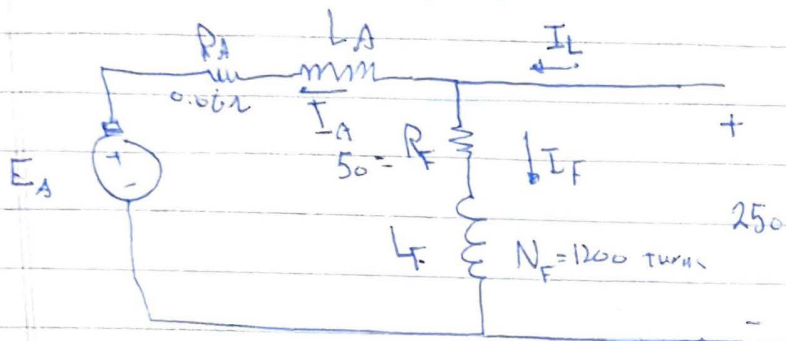 R_A L_A I_L
0.06Ω
I_A
50 = R_F I_F
+
E_A + -
250
L_F N_F = 1200 turns
-